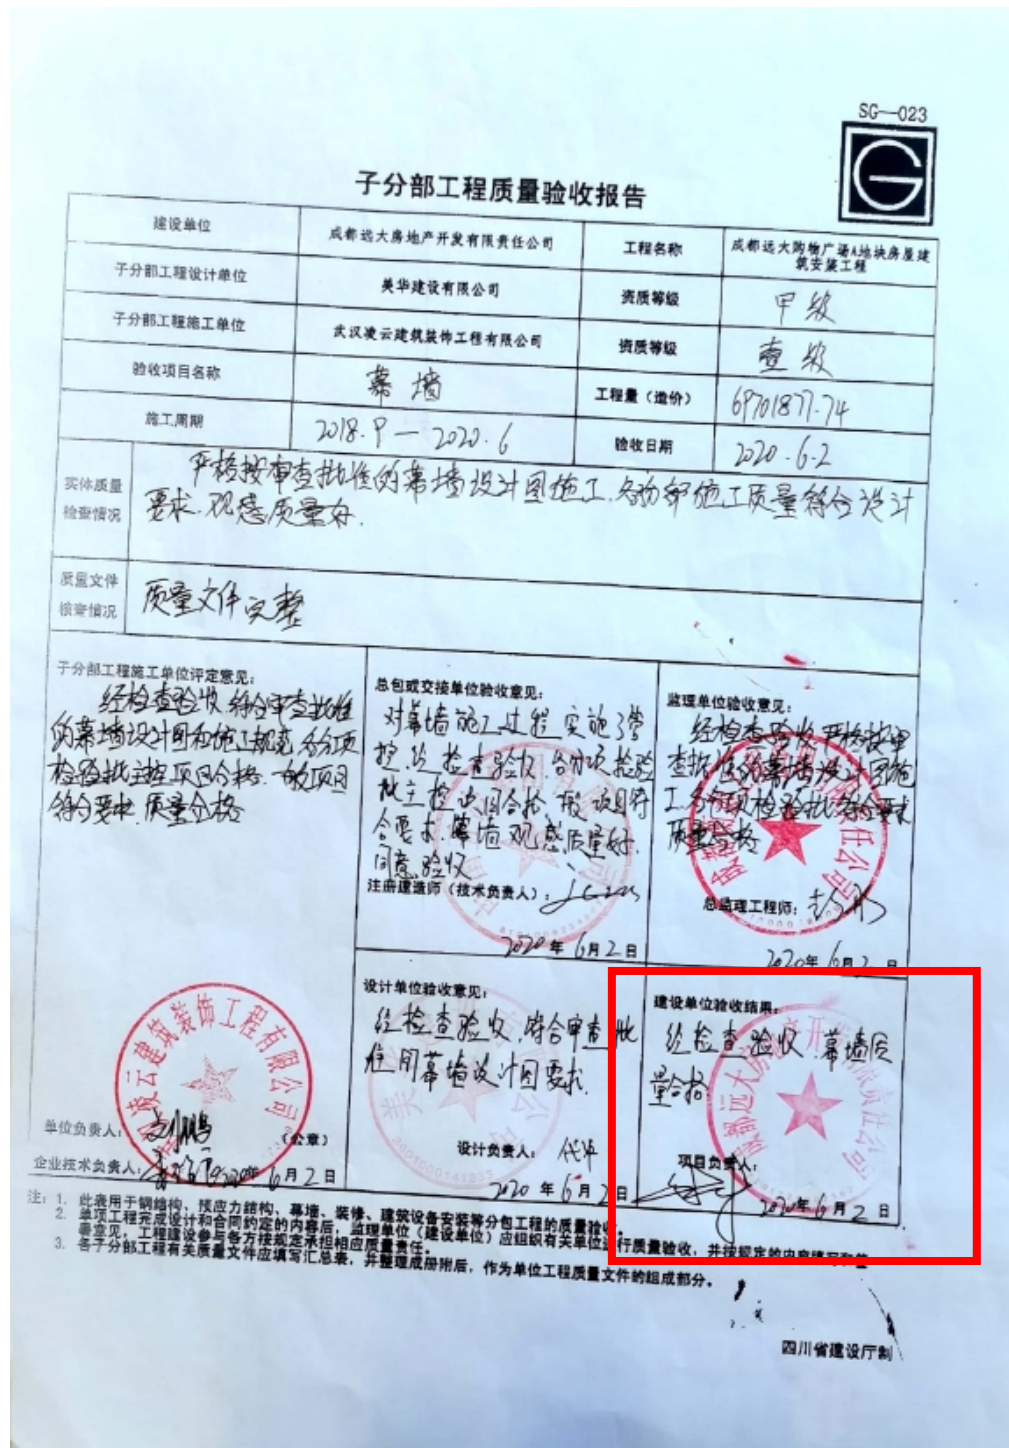 SG—023
子分部工程质量验收报告
建设单位
成都远大房地产开发有限责任公司
工程名称
成都远大购物广场A地块房屋建
筑安装工程
子分部工程设计单位
美华建设有限公司
资质等级
甲级
子分部工程施工单位
武汉凌云建筑装饰工程有限公司
资质等级
壹级
验收项目名称
幕墙
工程量（造价）
69701877.74
施工周期
2018.9—2020.6
验收日期
2020.6.2
实体质量
检查情况
严格按审查批准的幕墙设计图施工.各分部施工质量符合设计
要求.观感质量好.
质量文件
检查情况
质量文件完整
子分部工程施工单位评定意见：
经检查验收,符合审查批准
的幕墙设计图和施工规范.各分项
检验批主控项目合格.一般项目
符合要求.质量合格
单位负责人：
（公章）
企业技术负责人：
2020年6月2日
总包或交接单位验收意见：
对幕墙施工过程实施了管
控,经检查验收,各分项检验
批主控项目合格.一般项目符
合要求.幕墙观感质量好.
同意验收
注册建造师（技术负责人）：
2020年6月2日
监理单位验收意见：
经检查验收,严格按审
查批准的幕墙设计图施
工.各分项检验批符合要求
质量合格
总监理工程师：
2020年6月2日
设计单位验收意见：
经检查验收,符合审查批
准用幕墙设计图要求.
设计负责人：
2020年6月2日
建设单位验收结果：
经检查验收.幕墙质
量合格
项目负责人：
2020年6月2日
武汉凌云建筑装饰工程有限公司
成都远大房地产开发有限责任公司
注：1. 此表用于钢结构，预应力结构、幕墙、装修、建筑设备安装等分包工程的质量验收。
2. 单项工程完成设计和合同约定的内容后，监理单位（建设单位）应组织有关单位进行质量验收，并按规定的内容填写和签
署意见，工程建设参与各方按规定承担相应质量责任。
3. 各子分部工程有关质量文件应填写汇总表，并整理成册附后，作为单位工程质量文件的组成部分。
四川省建设厅制